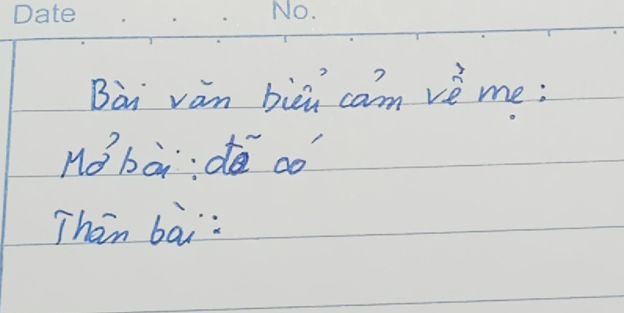 Date . . . . No.
Bài văn biểu cảm về mẹ:
Mở bài: đã có
Thân bài: